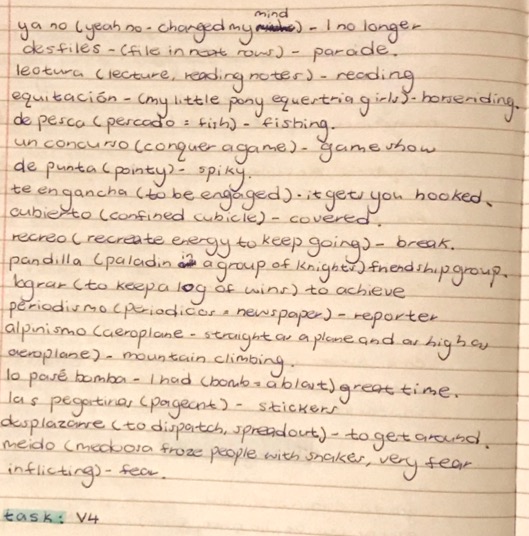 mind
ya no (yeah no - changed my) - I no longer
desfiles - (file in neat rows) - parade.
lectura (lecture, reading notes) - reading
equitación - (my little pony equestria girls) - horseriding.
de pesca (pescado = fish) - fishing.
un concurso (conquer a game) - game show
de punta (pointy) - spiky.
te engancha (to be engaged) - it gets you hooked.
cubierto (confined cubicle) - covered.
recreo (recreate energy to keep going) - break.
pandilla (paladin a group of knights) friendship group.
lograr (to keep a log of wins) to achieve
périodismo (periodicos = newspaper) - reporter
alpinismo (aeroplane - straight as a plane and as high as
aeroplane) - mountain climbing.
lo pasé bomba - I had (bomb = a blast) great time.
las pegatinas (pageant) - stickers
desplazarse (to dispatch, spread out) - to get around.
meido (medusa froze people with snakes, very fear
inflicting) - fear.
task: V4